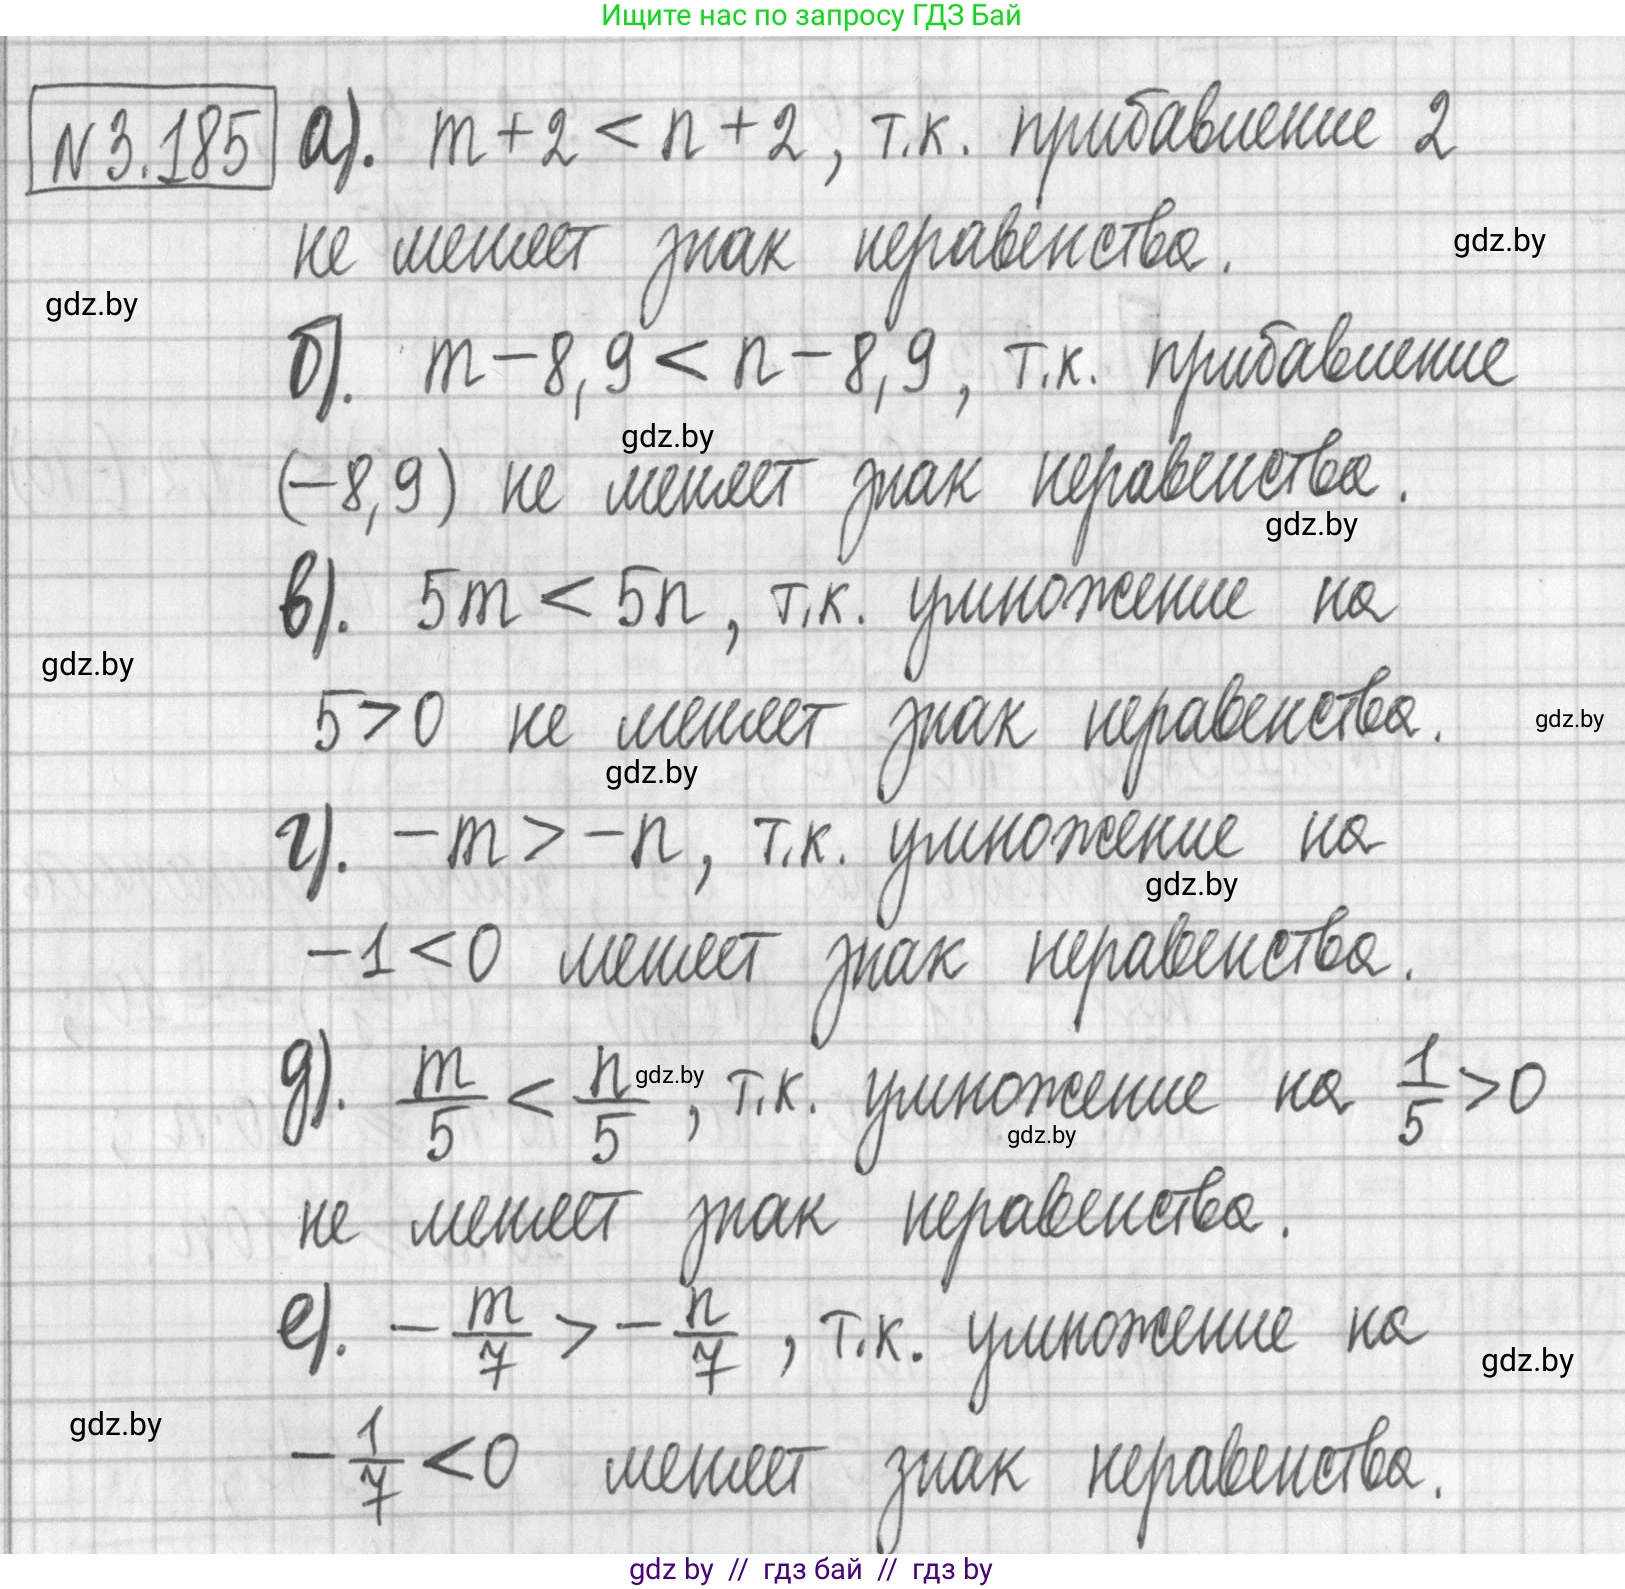 Ищите нас по запросу ГДЗ Бай
N3.185 а). m+2 < n+2, т.к. прибавление 2
не меняет знак неравенства.
gdz.by
gdz.by
б). m-8,9 < n-8,9, т.к. прибавление
gdz.by
(-8,9) не меняет знак неравенства.
gdz.by
в). 5m < 5n, т.к. умножение на
gdz.by
5>0 не меняет знак неравенства.
gdz.by
gdz.by
г). -m > -n, т.к. умножение на
gdz.by
-1<0 меняет знак неравенства.
д). m/5 < n/5, т.к. умножение на 1/5>0
gdz.by
gdz.by
не меняет знак неравенства.
е). -m/7 > -n/7, т.к. умножение на
gdz.by
gdz.by
-1/7 <0 меняет знак неравенства.
gdz by // гдз бай // гдз by